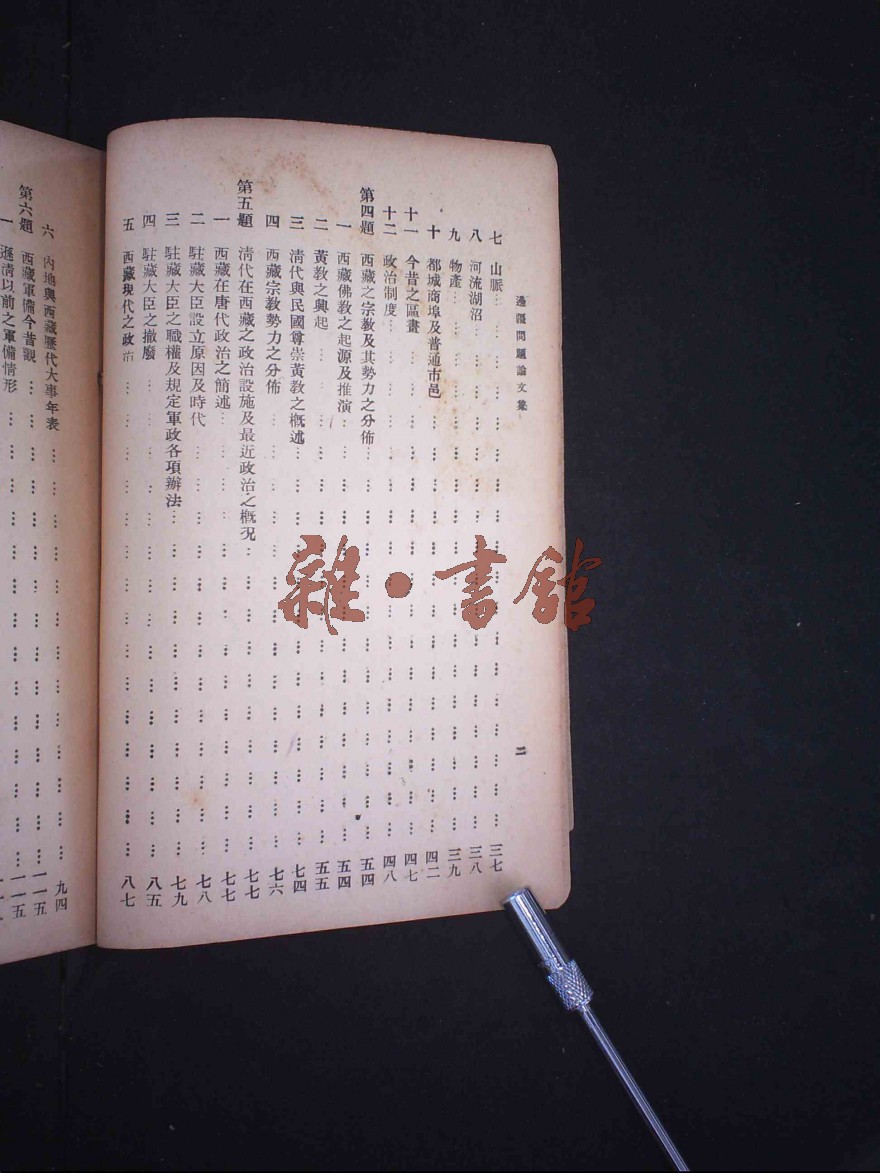 邊疆問題論文集
二
七 山脈 三七
八 河流湖沼 三八
九 物產 三九
十 都城商埠及普通市邑 四二
十一 今昔之區畫 四七
十二 政治制度 四八
第四題 西藏之宗教及其勢力之分佈 五四
一 西藏佛教之起源及推演 五四
二 黃教之興起 五五
三 清代與民國尊崇黃教之概述 七四
四 西藏宗教勢力之分佈 七六
第五題 清代在西藏之政治設施及最近政治之概況 七七
一 西藏在唐代政治之簡述 七七
二 駐藏大臣設立原因及時代 七八
三 駐藏大臣之職權及規定軍政各項辦法 七九
四 駐藏大臣之撤廢 八五
五 西藏現代之政治 八七
六 內地與西藏歷代大事年表 九四
第六題 西藏軍備今昔觀 一一五
一 遜清以前之軍備情形 一一五
雜·書館